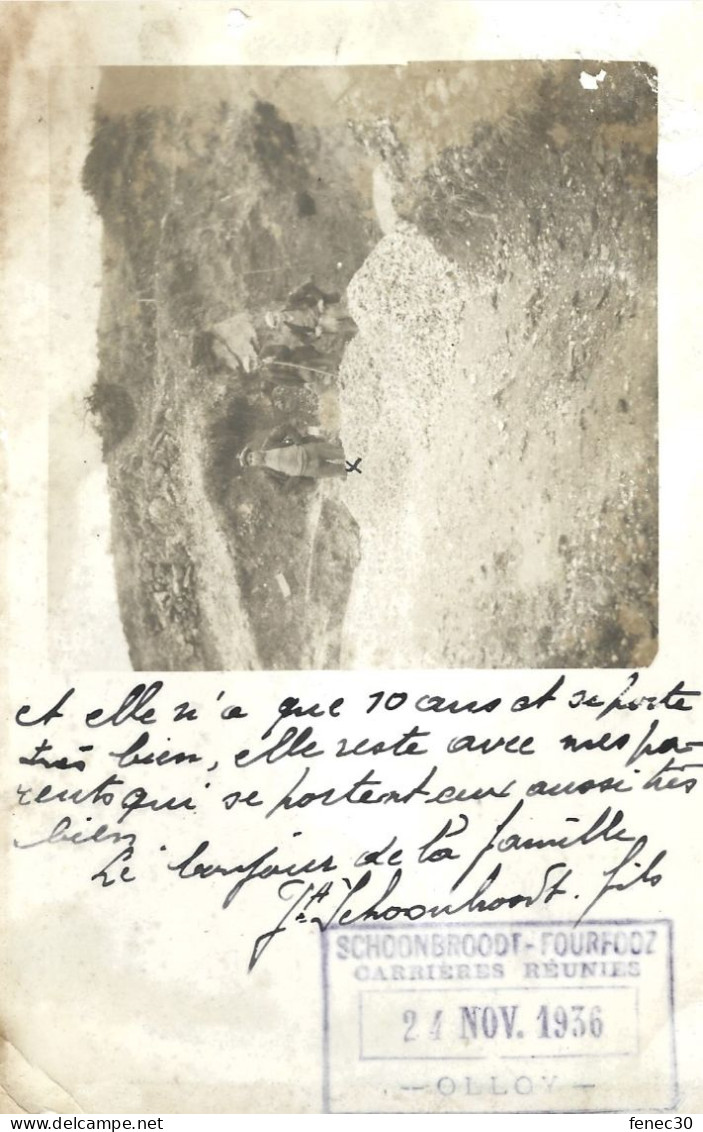 X
et elle n'a que 10 ans et se porte
très bien, elle reste avec mes pa-
rents qui se portent eux aussi très
bien
Le bonjour de la famille
Jh Schoonbroodt. fils
SCHOONBROODT-FOURFOOZ
CARRIÈRES RÉUNIES
24 NOV. 1936
— OLLOY —
delcampe.net
fenec30